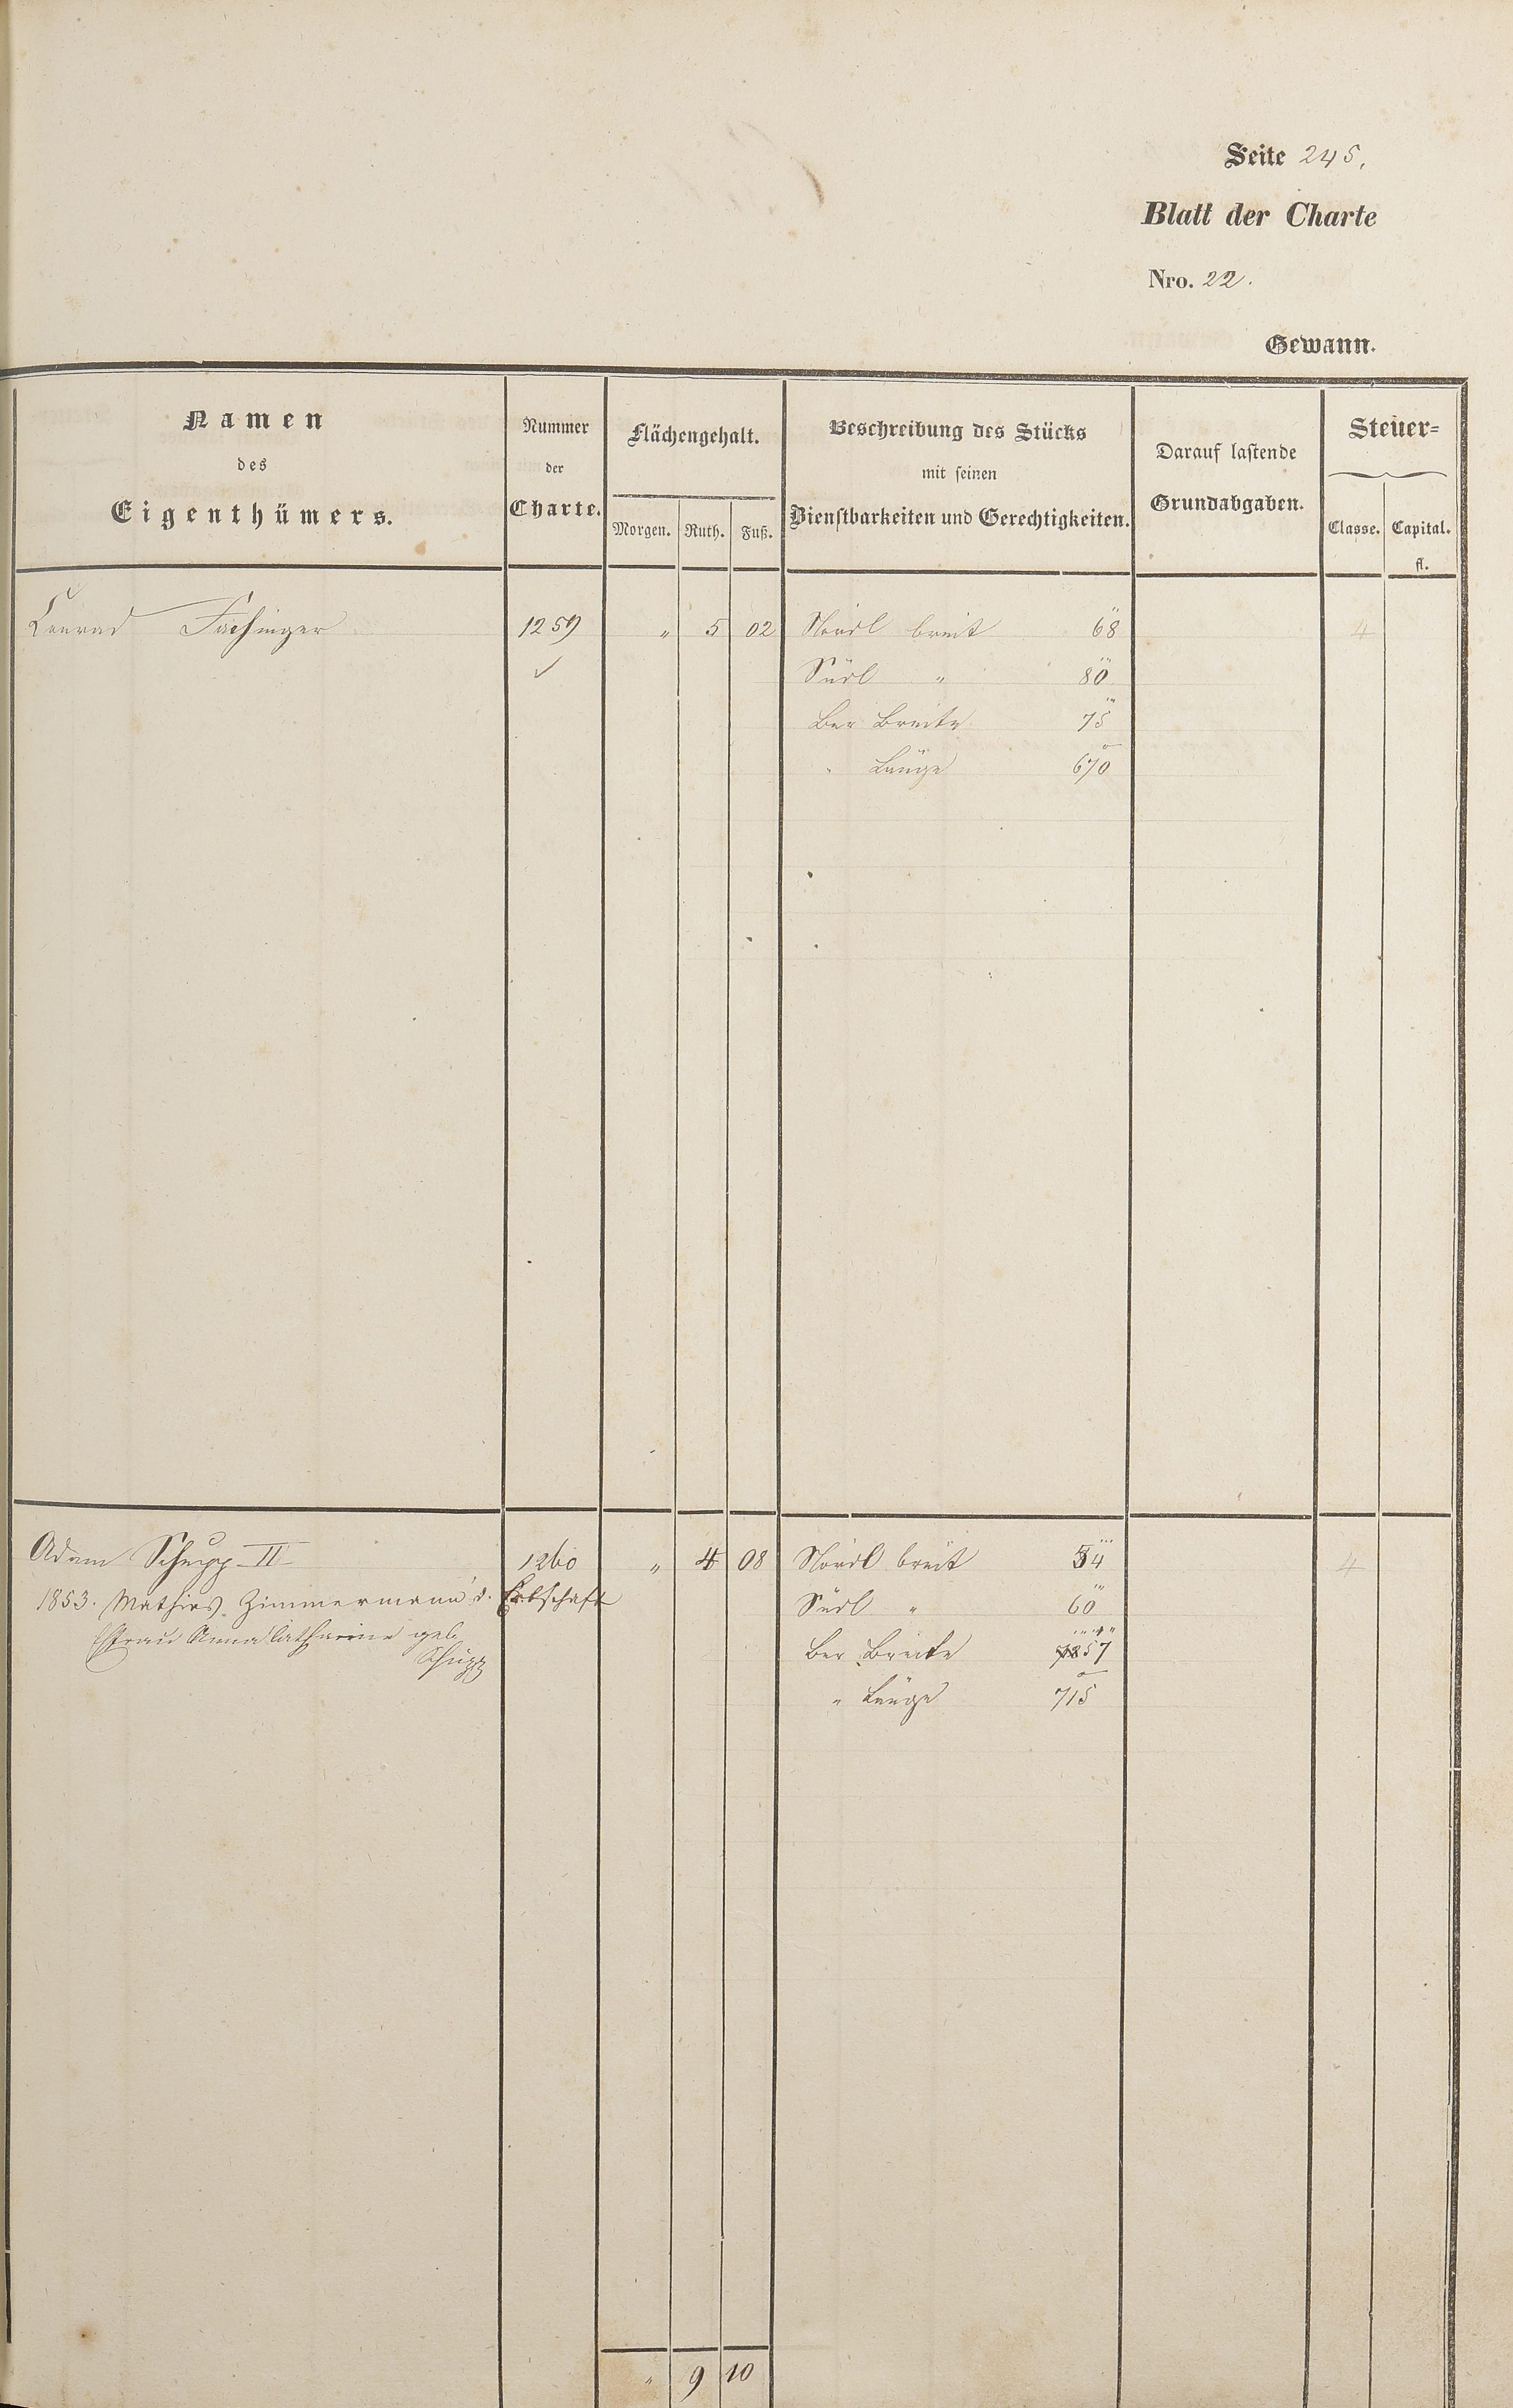 Seite 245.
Blatt der Charte
Nro. 22.
Gewann.
Namen
des
Eigenthümers.
Nummer
der
Charte.
Flächengehalt.
Morgen. Ruth. Fuß.
Beschreibung des Stücks
mit seinen
Dienstbarkeiten und Gerechtigkeiten.
Darauf lastende
Grundabgaben.
Steuer=
Classe. Capital.
fl.
Conrad Fachinger 1259 " 5 02 Nördl breit 68 4
✓ Südl " 80
Ber Breite 75
" Länge 670
Adam Schupp II 1260 " 4 08 Nördl breit 54 4
1853. Mathias Zimmermann d. Erbschaft Südl " 60
Ehefrau Anna Catharine geb. Ber Breite 57
Schupp
" Länge 715
" 9 10